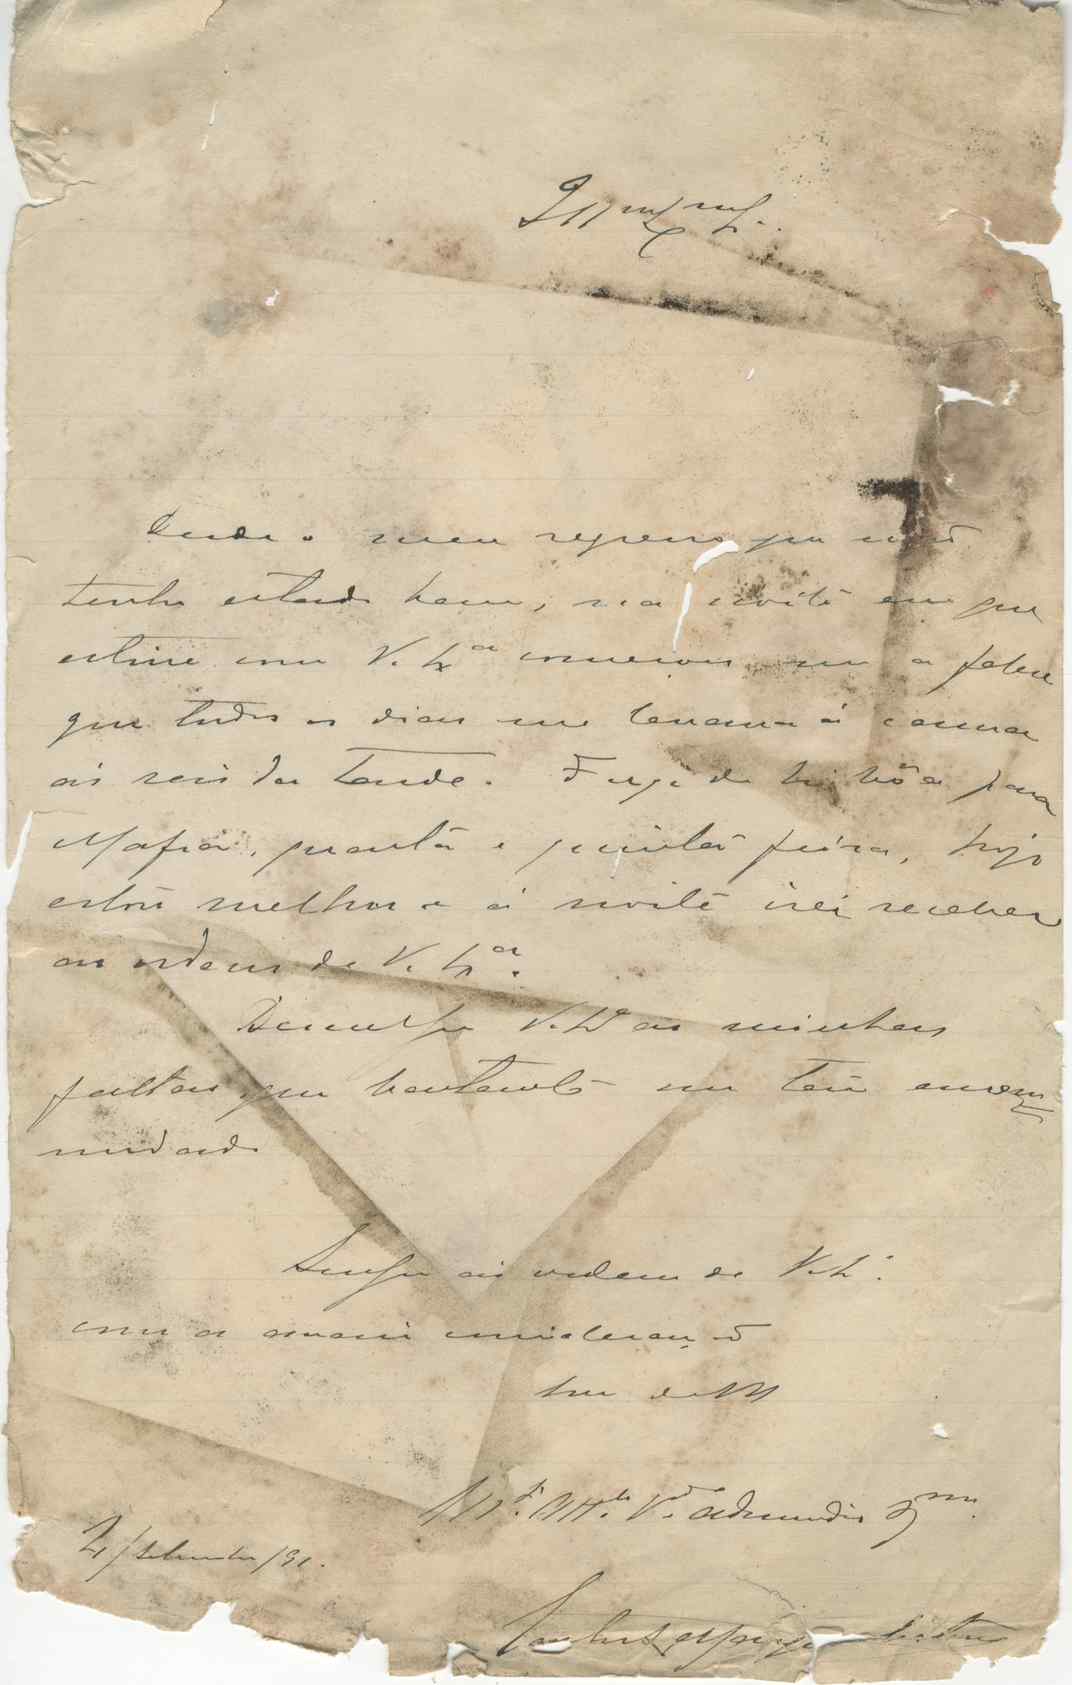 Illmo Exmo Sr.
Desde o meu regresso que não
tenho estado bom, na noite em que
estive com V. Exa começou-me a febre
que todos os dias me levava á cama
ás seis da tarde. Fugi de Lisbôa para
Mafra, quarta e quinta feira, hoje
estou melhor e á noite irei receber
as ordens de V. Exa.
Desculpe V. Exa as minhas
faltas que bastante me tem
Sempre ás ordens de V. Exa.
com a maior consideração
De V.
Mto. Atto. Vor. admirador
2/Setembro/91.